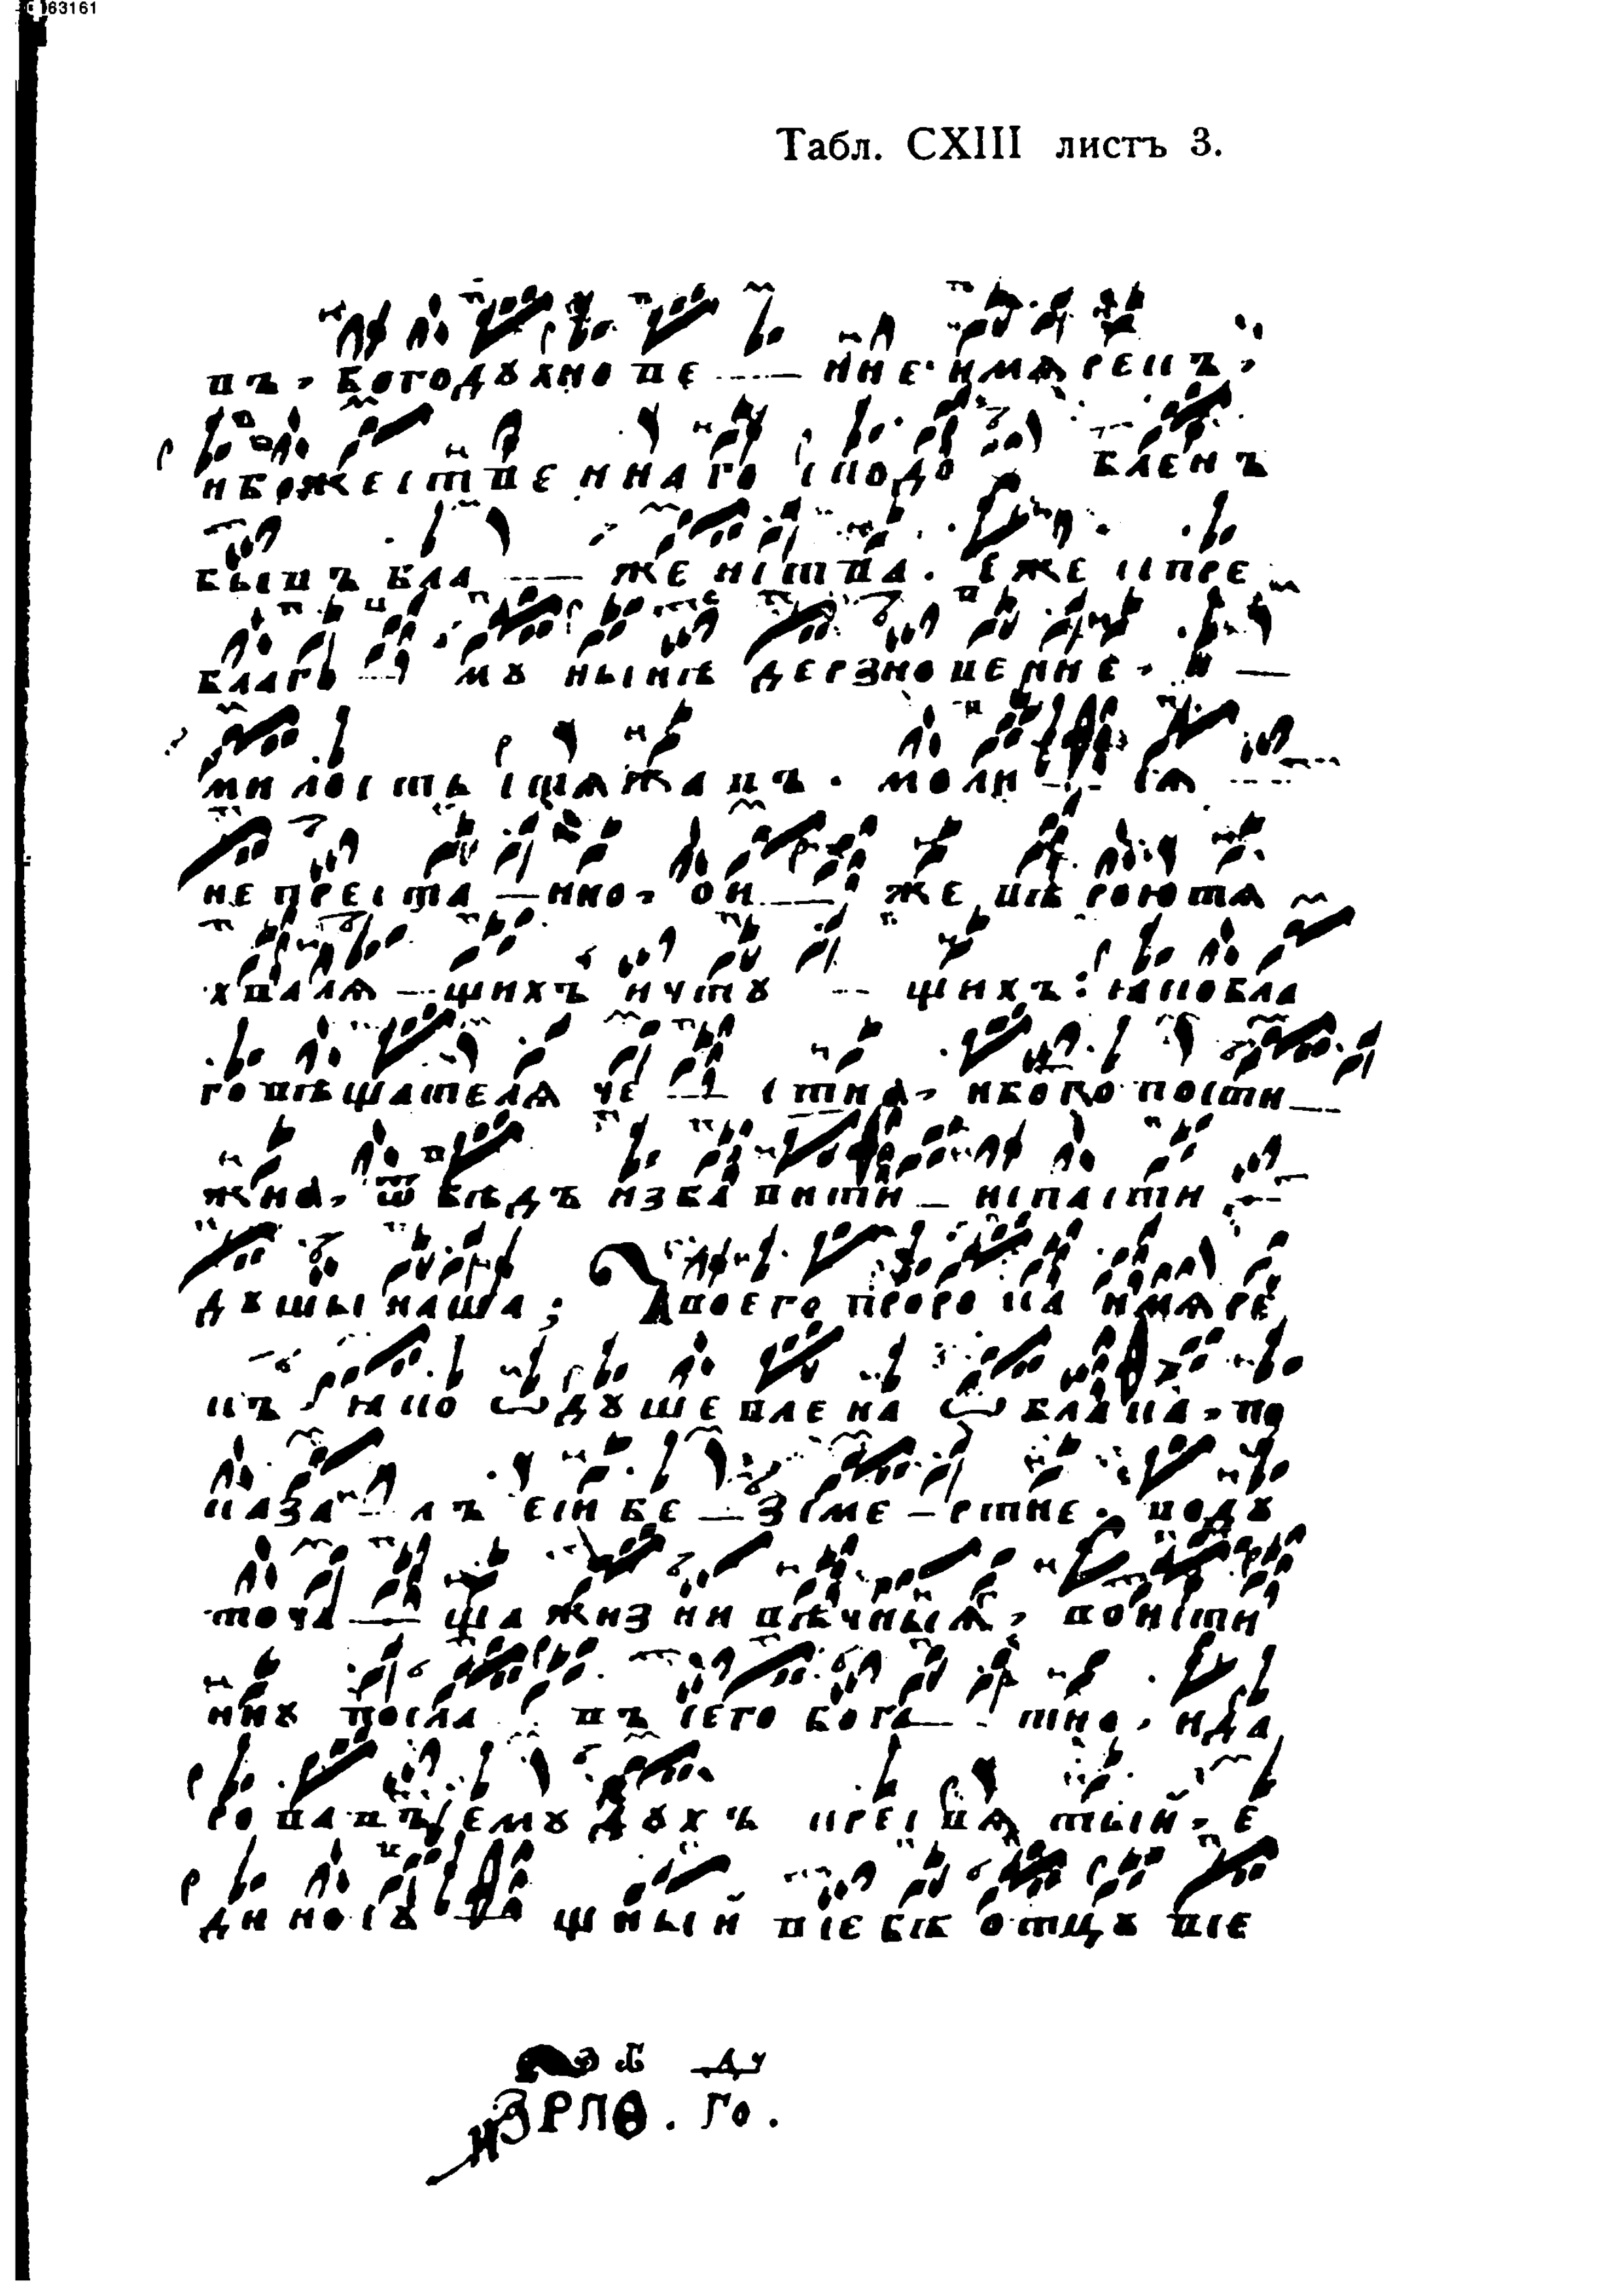 63161
Табл. CXIII листъ 3.
въ, богодꙋхнове нне имѧрекъ,
ибожественнаго сподо бленъ
бывъ бла женства. еже кпре
благо мꙋ нынѣ дерзновение, и
милость стѧжавъ. моли сѧ
непреста нно, он же вѣроютѧ
хвалѧ щихъ ичтꙋ щихъ: ꙗкобла
говѣщателѧ че стна, ибогопости
жна, ѿ бѣдъ избавити испасти
дꙋшы наша; Твоего пророка имѧре
къ ꙗко ѡдꙋшевлена ѡблака, по
каза лъ еси бе зсме ртне. водꙋ
точа ща жизни вѣчныѧ, воисти
ннꙋ посла въ сего бога тно, ида
ровавъ емꙋ дꙋхъ пресвѧтый, е
диносꙋ щный себѣ отцꙋ все
ЗРПѲ. го.